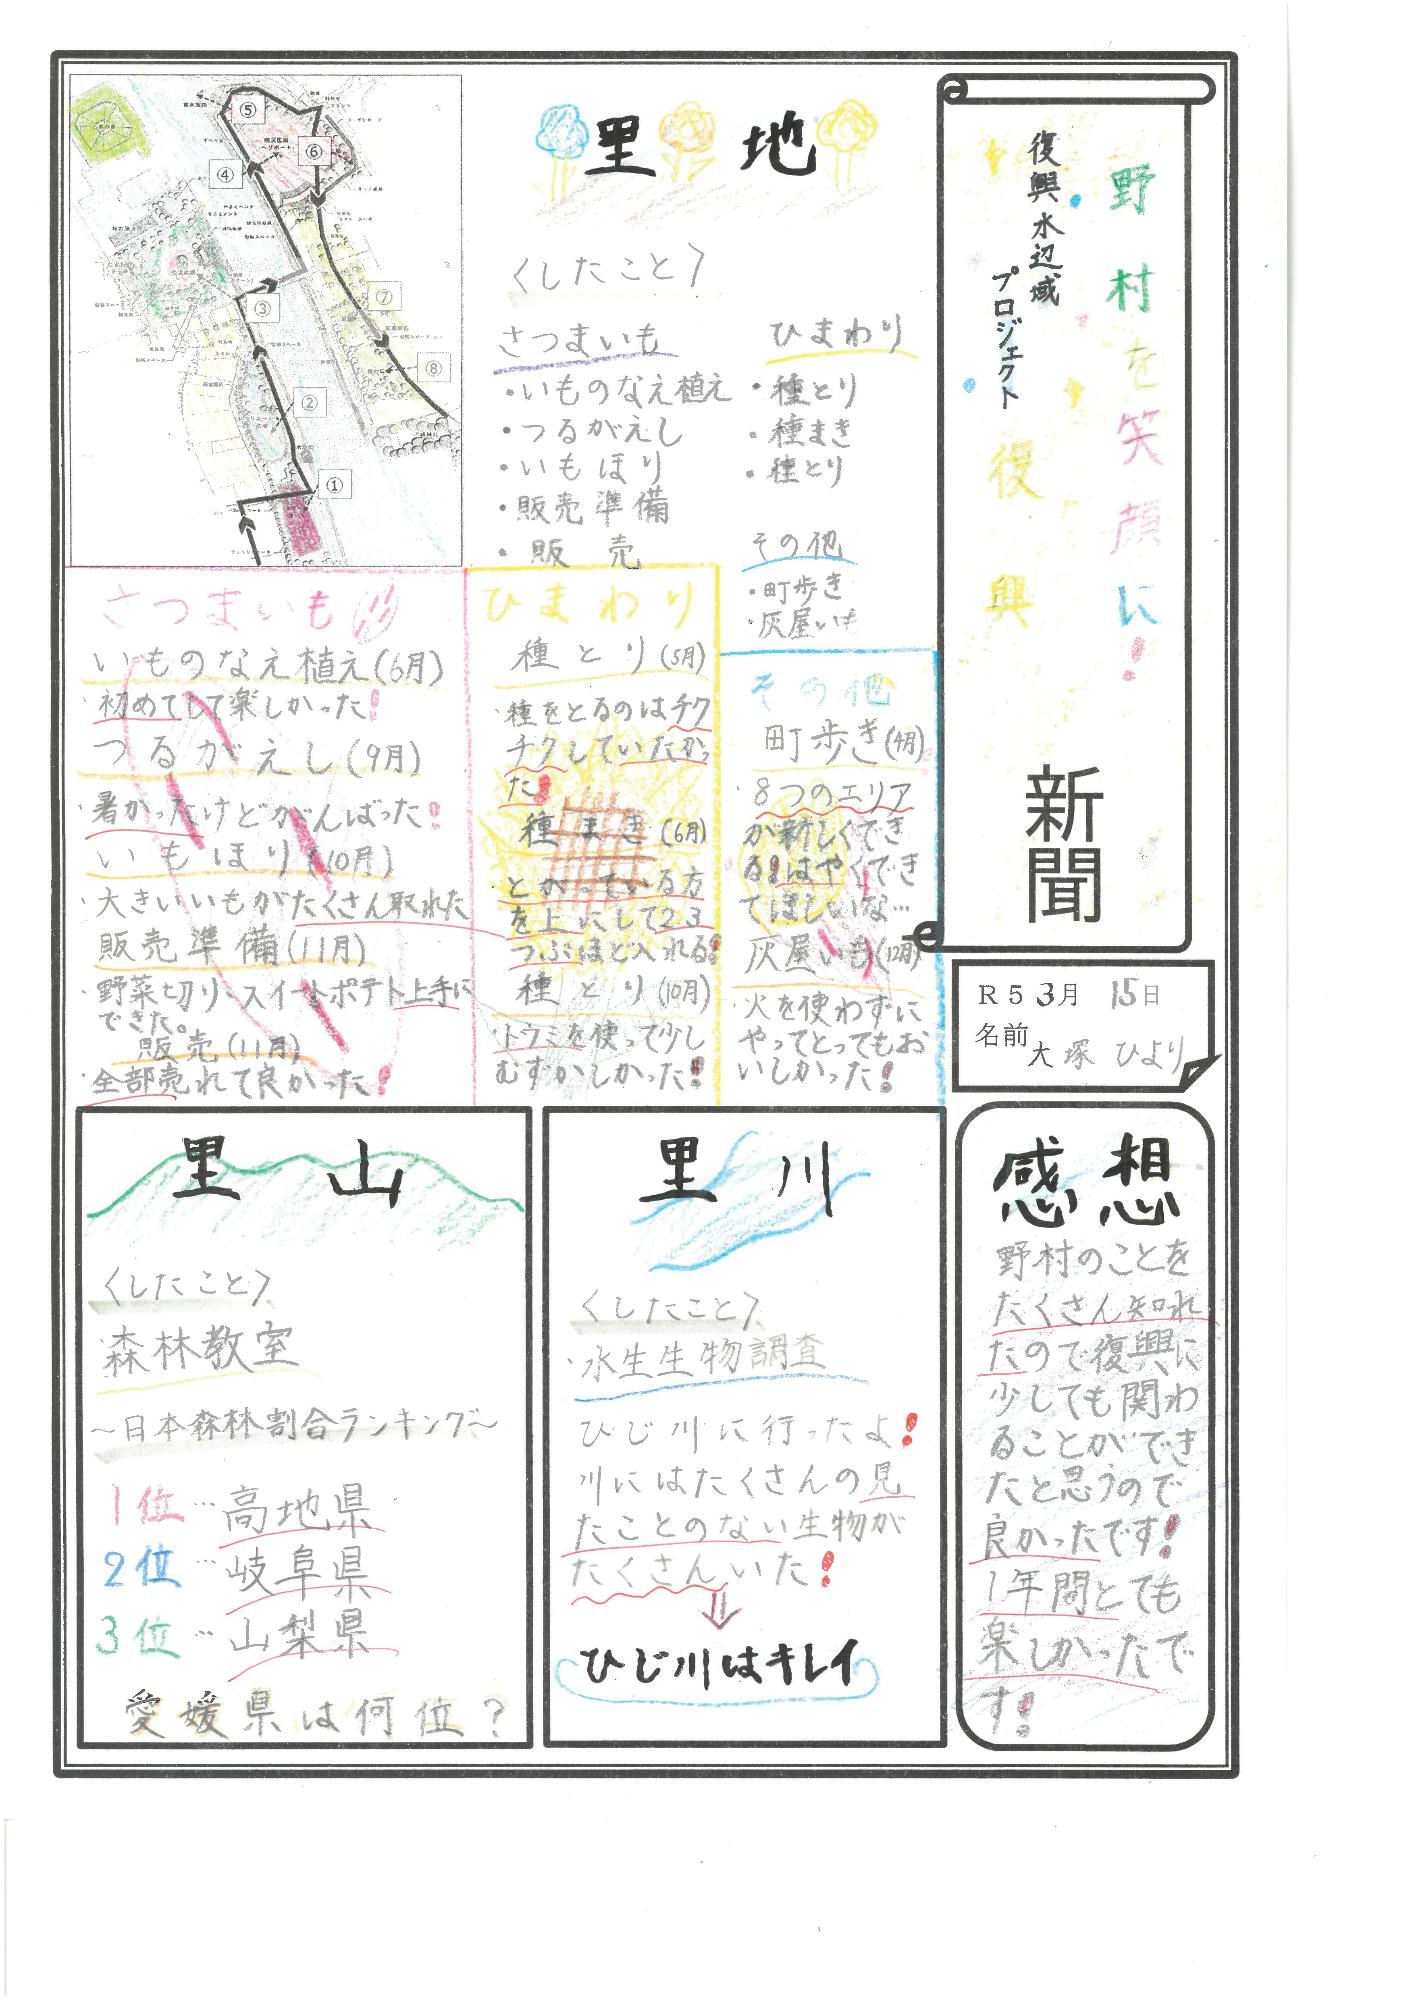 野村を笑顔に!
復興水辺域
プロジェクト
復興
新聞
R5 3月 15日
名前
大塚 ひより
里 地
〈したこと〉
さつまいも
・いものなえ植え
・つるがえし
・いもほり
・販売準備
・販 売
ひまわり
・種とり
・種まき
・種とり
その他
・町歩き
・灰屋いも
①
②
③
④
⑤
⑥
⑦
⑧
さつまいも
いものなえ植え(6月)
・初めてして楽しかった!
つるがえし(9月)
・暑かったけどがんばった!
いもほり(10月)
・大きいいもがたくさん取れた
販売準備(11月)
・野菜切り、スイートポテト上手に
できた。
販売(11月)
・全部売れて良かった!
ひまわり
種とり(5月)
・種をとるのはチク
チクしていたかっ
た!
種まき(6月)
とがっている方
を上にして2 3
つぶほど入れる!
種とり(10月)
・トウミを使って少し
むずかしかった!
その他
町歩き(4月)
・8つのエリア
が新しくでき
る!はやくでき
てほしいな…
灰屋いも(12月)
・火を使わずに
やってとってもお
いしかった!
里 山
〈したこと〉
・森林教室
～日本森林割合ランキング～
1位…高地県
2位…岐阜県
3位…山梨県
愛媛県は何位?
里 川
〈したこと〉
・水生生物調査
ひじ川に行ったよ!
川にはたくさんの見
たことのない生物が
たくさんいた!
⇓
ひじ川はキレイ
感想
野村のことを
たくさん知れ
たので復興に
少しても関わ
ることができ
たと思うので
良かったです!
1年間とても
楽しかったで
す!